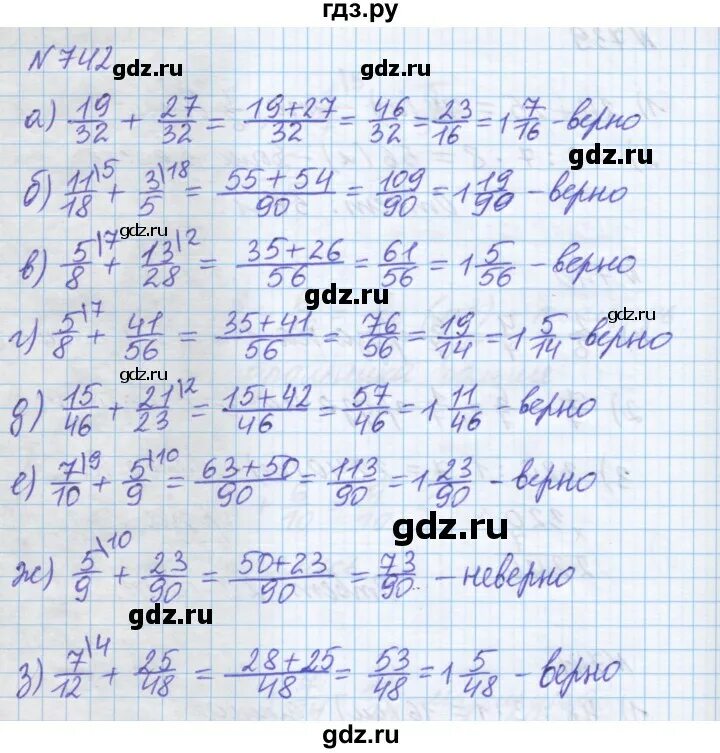 гдз.ру
N 742
gdz.ru
а) 19/32 + 27/32 = (19+27)/32 = 46/32 = 23/16 = 1 7/16 - верно
gdz.ru
б) 11\5/18 + 3\18/5 = (55+54)/90 = 109/90 = 1 19/90 - верно
gdz.ru
в) 5\7/8 + 13\2/28 = (35+26)/56 = 61/56 = 1 5/56 - верно
gdz.ru
gdz.ru
г) 5\7/8 + 41/56 = (35+41)/56 = 76/56 = 19/14 = 1 5/14 - верно
gdz.ru
д) 15/46 + 21\2/23 = (15+42)/46 = 57/46 = 1 11/46 - верно
е) 7\9/10 + 5\10/9 = (63+50)/90 = 113/90 = 1 23/90 - верно
gdz.ru
ж) 5\10/9 + 23/90 = (50+23)/90 = 73/90 - неверно
gdz.ru
gdz.ru
з) 7\4/12 + 25/48 = (28+25)/48 = 53/48 = 1 5/48 - верно
gdz.ru